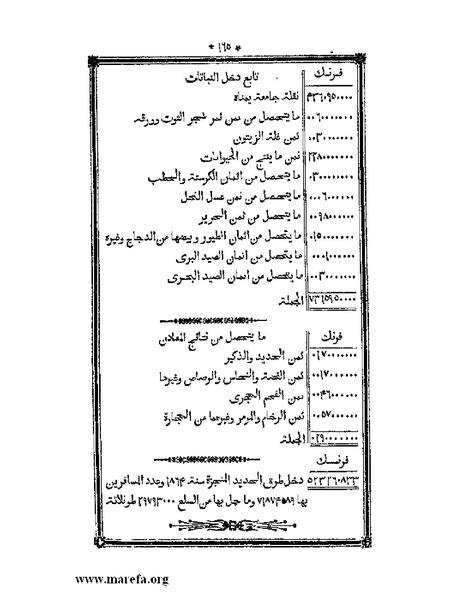 * ١٦٥ *
فرنك تابع دخل النباتات
٤٣٦٠٩٥٠٠٠٠ نقلة جامعة يمناه
٠٠٦٠٠٠٠٠٠٠ ما يتحصل من ثمن ثمر شجر التوت وورقه
٠٠٣٠٠٠٠٠٠٠ ثمن غلة الزيتون
٢٢٨٠٠٠٠٠٠٠ ثمن ما ينتج من الحيوانات
٠٣٠٠٠٠٠٠٠٠ ما يتحصل من اثمان الكرستة والحطب
٠٠٠٦٠٠٠٠٠٠ ما يتحصل من ثمن عسل النحل
٠٠٩٨٠٠٠٠٠٠ ما يتحصل من ثمن الحرير
٠١٥٠٠٠٠٠٠٠ ما يتحصل من اثمان الطيور وبيضها من الدجاج وغيره
٠٠٠١٠٠٠٠٠٠ ما يتحصل من اثمان الصيد البرى
٠٠٣٠٠٠٠٠٠٠ ما يتحصل من اثمان الصيد البحرى
٧٣١٥٩٥٠٠٠٠ الجملة
فرنك ما يتحصل من نتائج المعادن
٠١٧٠٠٠٠٠٠٠ ثمن الحديد والذكير
٠٠١٧٠٠٠٠٠٠ ثمن الفضة والنحاس والرصاص وغيرها
٠٠٤٦٠٠٠٠٠٠ ثمن الفحم الحجرى
٠٠٥٧٠٠٠٠٠٠ ثمن الرخام والمرمر وغيرهما من الحجارة
٠٢٩٠٠٠٠٠٠٠ الجملة
فرنسك
٥٢٣٢٦٠٨٣٣ دخل طرق الحديد المنجزة سنة ١٨٦٤ وعدد المسافرين
بها ٧١٨٧٤٥٨٩ وما حمل بها من السلع ٢٩٧٩٣٠٠٠ طونلاتة
www.marefa.org